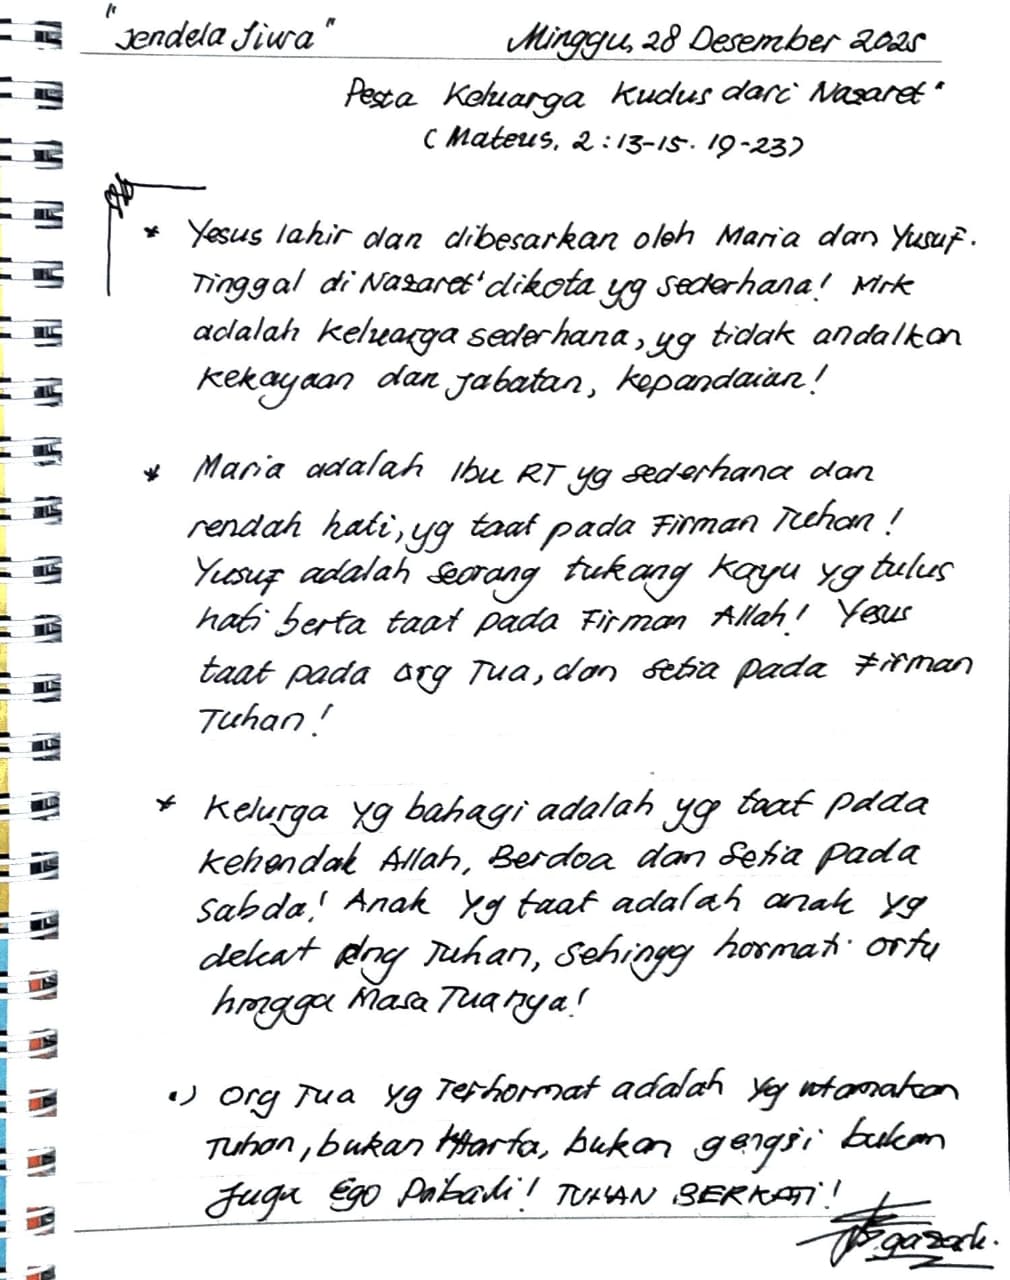 "Jendela Jiwa" Minggu, 28 Desember 2025
Pesta Keluarga Kudus dari Nazaret"
(Mateus, 2:13-15. 19-23)
* Yesus lahir dan dibesarkan oleh Maria dan Yusuf.
Tinggal di Nazaret' dikota yg sederhana! Mrk
adalah keluarga sederhana, yg tidak andalkan
kekayaan dan jabatan, kepandaian!
* Maria adalah Ibu RT yg sederhana dan
rendah hati, yg taat pada Firman Tuhan!
Yusuf adalah seorang tukang kayu yg tulus
hati berta taat pada Firman Allah! Yesus
taat pada Org Tua, dan setia pada Firman
Tuhan!
* Kelurga yg bahagi adalah yg taat pada
kehendak Allah, Berdoa dan Setia pada
sabda! Anak yg taat adalah anak yg
dekat dng Tuhan, sehingg hormati ortu
hingga Masa Tuanya!
•) Org Tua yg Terhormat adalah yg utamakan
Tuhan, bukan Harta, bukan gengsi bukan
Juga Ego Pribadi! TUHAN BERKATI!